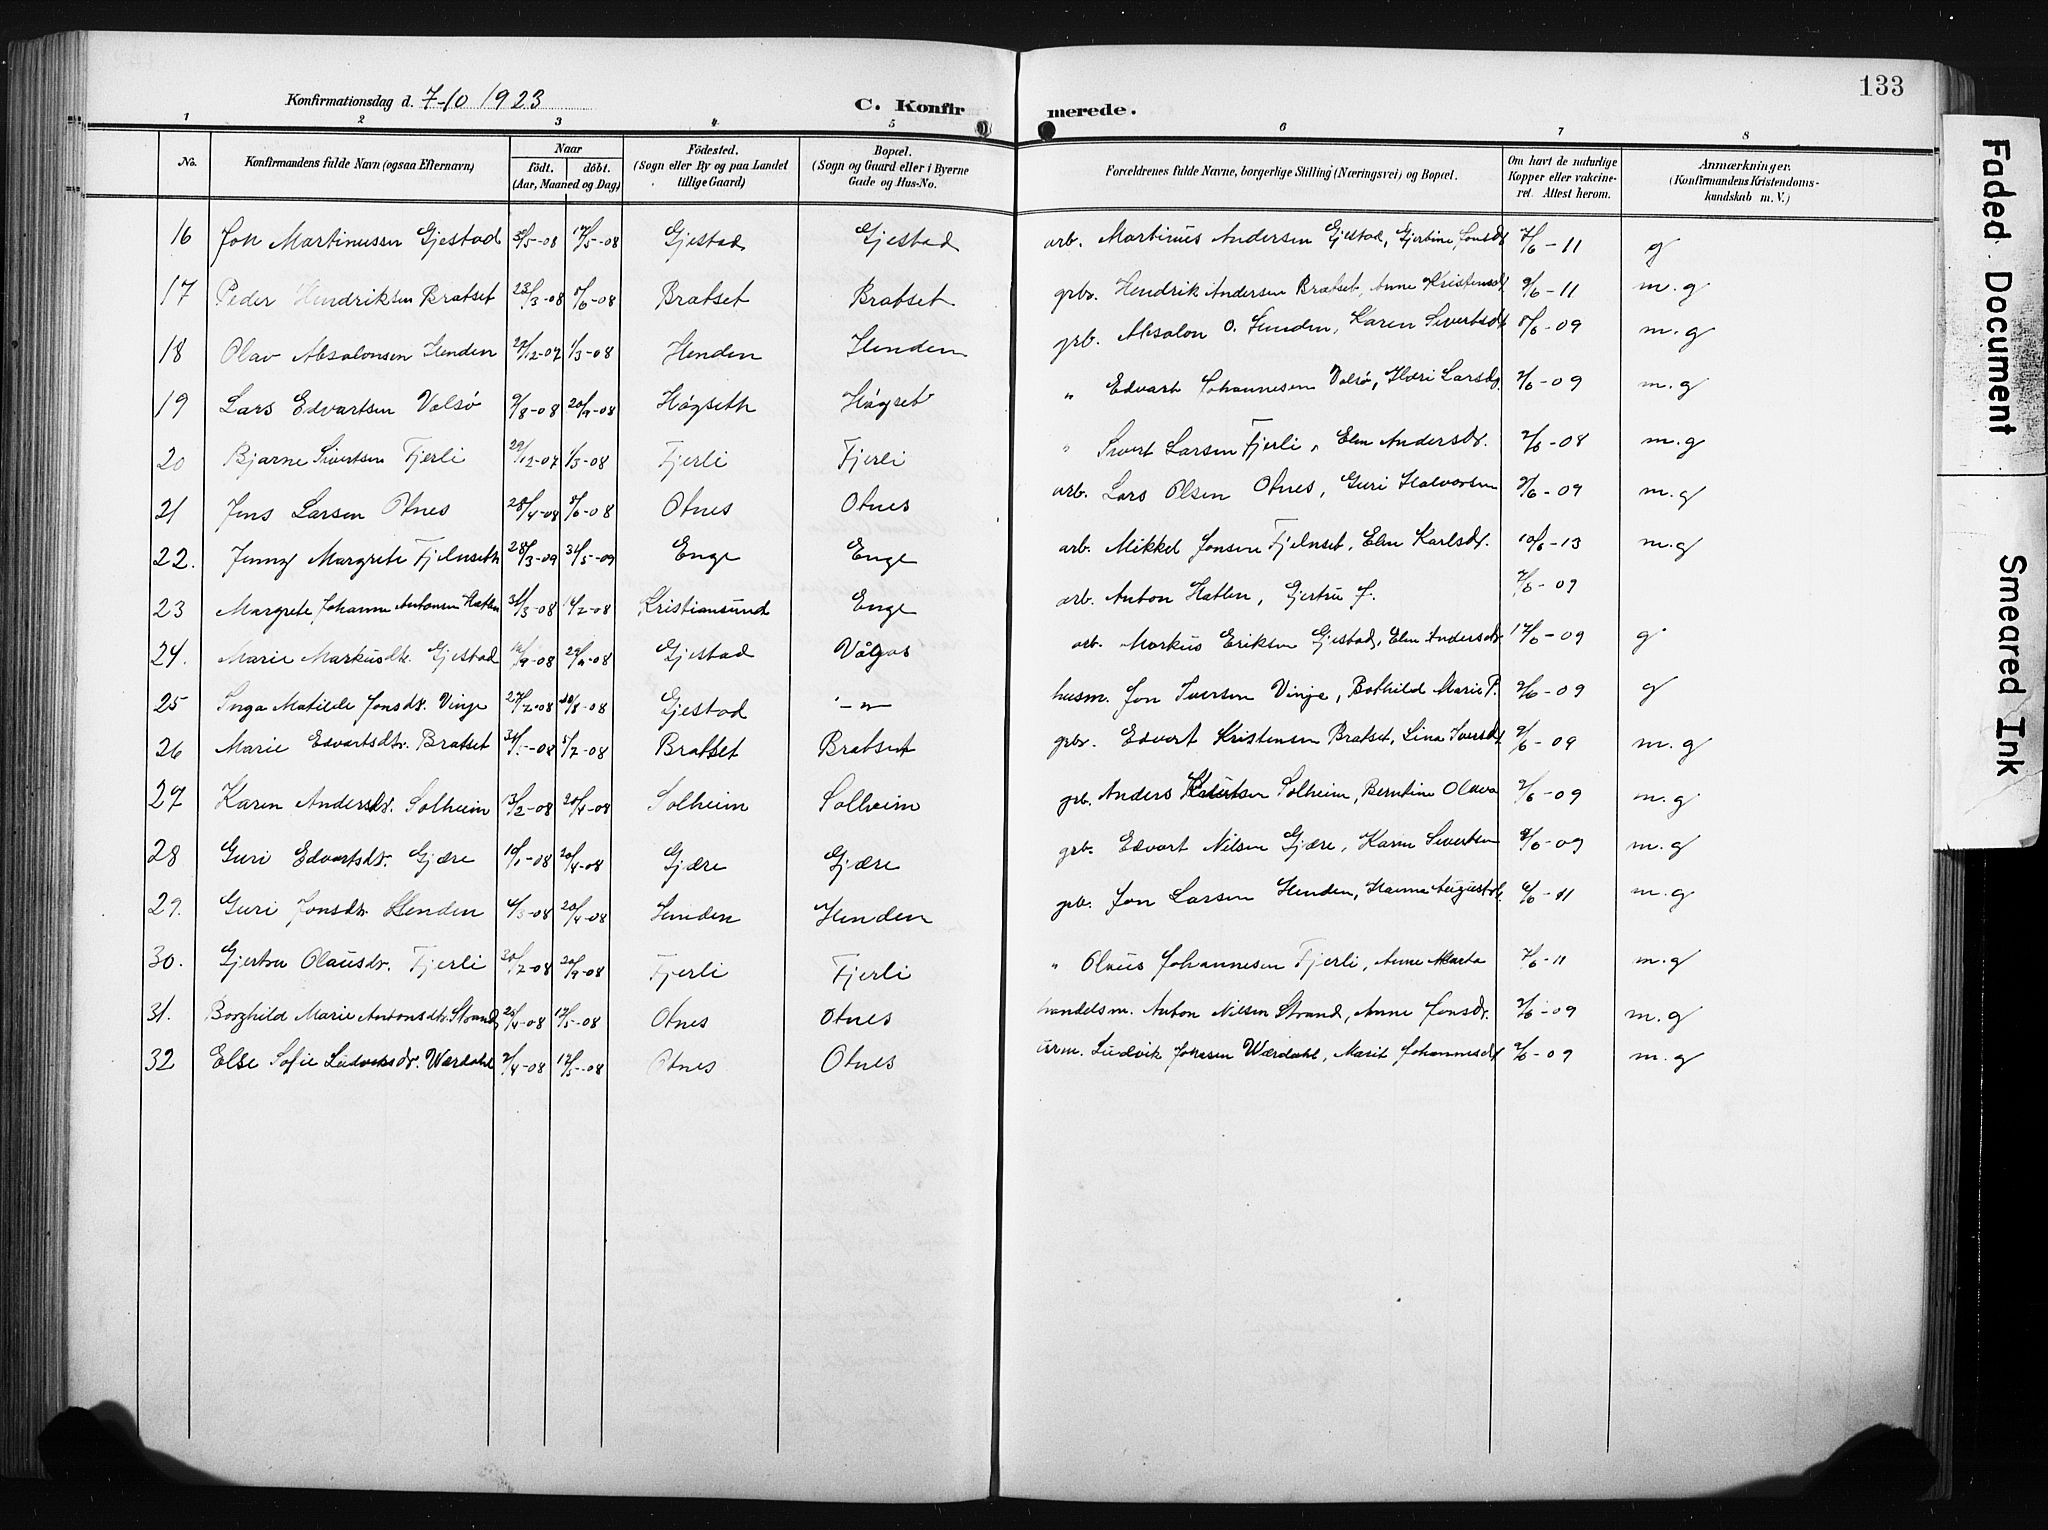 133
Konfirmationsdag d. 7-10 1923 C. Konfirmerede.
1 2 3 4 5 6 7 8
No. Konfirmandens fulde Navn (ogsaa Efternavn) Naar født. døbt. (Aar, Maaned og Dag) Fødested. (Sogn eller By og paa Landet tillige Gaard) Bopæl. (Sogn og Gaard eller i Byerne Gade og Hus-No.) Forældrenes fulde Navne, borgerlige Stilling (Næringsvei) og Bopæl. Om havt de naturlige Kopper eller vakcineret. Attest herom. Anmærkninger. (Konfirmandens Kristendomskundskab m. V.)
16 Jon Martinussen Gjestad 17/5-08 Gjestad Gjestad arb. Martinus Andersen Gjestad, 7/6-11 g
17 Peder Hendriksen Bratset 23/3-08 8/6-08 Bratset Bratset grbr. Hendrik Andersen Bratset, Anne Kristensd. 9/6-11 m.g
18 Olav Absalonsen Henden 1/3-08 Henden Henden grb. Absalon O. Henden, Karen Sivertsd. 8/6-09 m.g
19 Lars Edvartsen Valsø 9/8-08 Høgseth Høgset „ Edvart Johannesen Valsø, Larsd. 2/6-09 m.g
20 Bjarne Sivertsen Fjerli 29/12-07 1/3-08 Fjerli Fjerli " Sivert Larsen Fjerli, Elen Andersd. 2/6-08 m.g
21 Jens Larsen Otnes 28/4-08 8/6-08 Otnes Otnes arb. Lars Olsen Otnes, Guri Halvorsen 2/6-09 m.g
22. Jenny Margrete Fjelnseth 28/3-09 31/5-09 Enge Enge arb. Mikkel Jonsen Fjelnset, Elen Karlsd. 10/6-13 m.g
23 Margrete Johanne Antonsen Hatlen 31/3-08 Kristiansund Enge arb. Anton Hatlen, Gjertru J. -09
24. Marie Markusdtr. Gjestad Gjestad Vågos arb. Markus Eriksen Gjestad, Elen Andersd. 17/6-09 g
25 Inga Matilde Jonsdtr. Vinje 27/2-08 Gjestad -"- husm. Jon Iversen Vinje, Bothild Marie P. 2/6-09 g
26 Marie Edvartsdtr. Bratset 5/7-08 Bratset Bratset grbr. Edvart Kristensen Bratset, Lina Iversd. 2/6-09 m.g
27 Karen Andersdtr. Solheim 13/2-08 20/4-08 Solheim Solheim grb. Anders Solheim, Berntine Olava 2/6-09 m.g
28 Guri Edvartsdtr. Gjære 10/1-08 20/4-08 Gjære Gjære grb. Edvart Nilsen Gjære, Karen Sivertsen 2/6-09 m.g
29. Guri Jonsdtr. Henden 4/3-08 20/4-08 Henden Henden grb. Jon Larsen Henden, Hanna Augustd. 6/6-11 m.g
30. Gjertru Olausdtr. Fjerli 20/7-08 20/9-08 Fjerli Fjerli " Olaus Johannesen Fjerli, Anne Marta 7/6-11 m.g
31. Borghild Marie Antonsdtr. Strand 17/5-08 Otnes Otnes handelsm. Anton Nilsen Strand, Anne Jonsdr. 2/6-09 m.g
32 Else Sofie Ludviksdr. Wærdahl 2/4-08 17/5-08 Otnes Otnes urm. Ludvik Johnsen Wærdahl, Marit Johannesd. 2/6-09 m.g
Faded Document
Smeared Ink